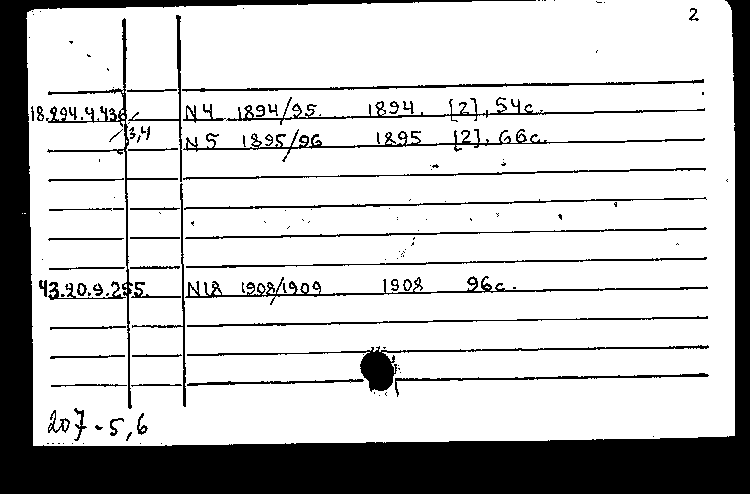 2
18.294.4.436/ N4 1894/95. 1894. [2], 54с.
/3,4 N5 1895/96 1895 [2], 66с.
43.20.9.255. N18 1908/1909 1908 96с.
207-5,6